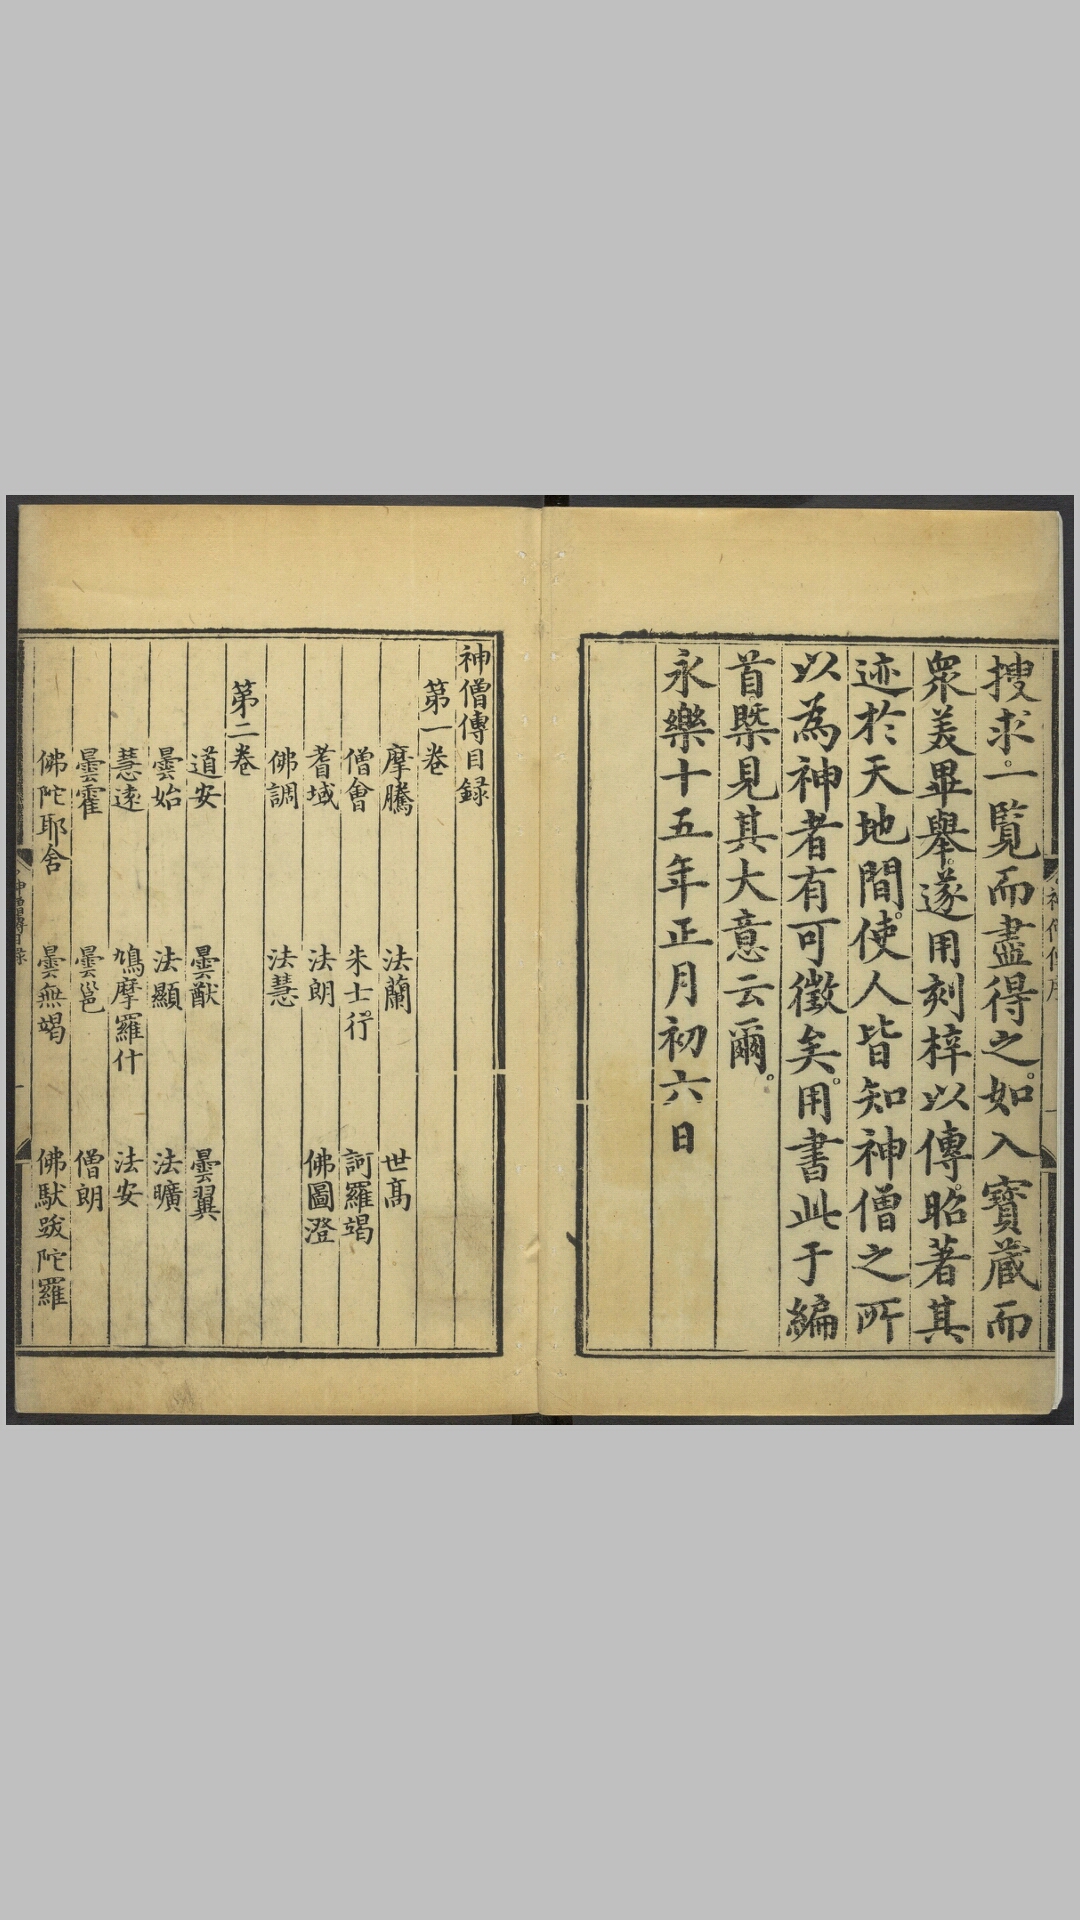 搜求一覽而盡得之如入寶藏而
衆美畢舉遂用刻梓以傳昭著其
迹於天地間使人皆知神僧之所
以為神者有可徵矣用書此于編
首槩見其大意云爾
永樂十五年正月初六日
神僧傳目録
第一卷
摩騰 法蘭 世高
僧會 朱士行 訶羅竭
耆域 法朗 佛圖澄
佛調 法慧
第二卷
道安 曇猷 曇翼
曇始 法顯 法曠
慧遠 鳩摩羅什 法安
曇霍 曇邕 僧朗
佛陀耶舍 曇無竭 佛馱跋陀羅